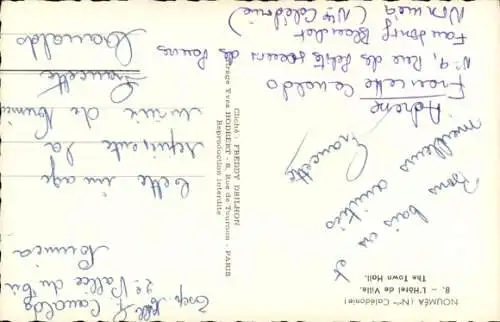 NOUMÉA (Nlle Calédonie)
8. - L'Hôtel de Ville.
The Town Hall.
Bons baisers
et
meilleures amitiés
Francette
Adresse
Francette Cavaldo
N° 9, Rue des Petites soeurs des Pauvres
Faubourg Blanchot
Nouméa (Nlle Calédonie)
Cliché : FREDDY DRILHON
Tirage Yves HODBERT - 8, Rue de Tournon - PARIS
Reproduction interdite
Exp. Mlle F. Cavaldo
2e Vallée du Tir
Nouméa
Cette image
représente la
mairie de Nouméa
Francette
Cavaldo